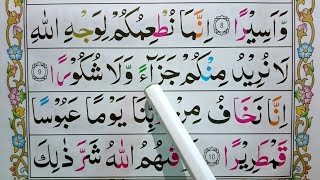 وَّاَسِيْرًا ۝٨ اِنَّمَا نُطْعِمُكُمْ لِوَجْهِ اللّٰهِ
لَا نُرِيْدُ مِنْكُمْ جَزَآءً وَّلَا شُكُوْرًا ۝٩
اِنَّا نَخَافُ مِنْ رَّبِّنَا يَوْمًا عَبُوْسًا
قَمْطَرِيْرًا ۝١٠ فَوَقٰىهُمُ اللّٰهُ شَرَّ ذٰلِكَ